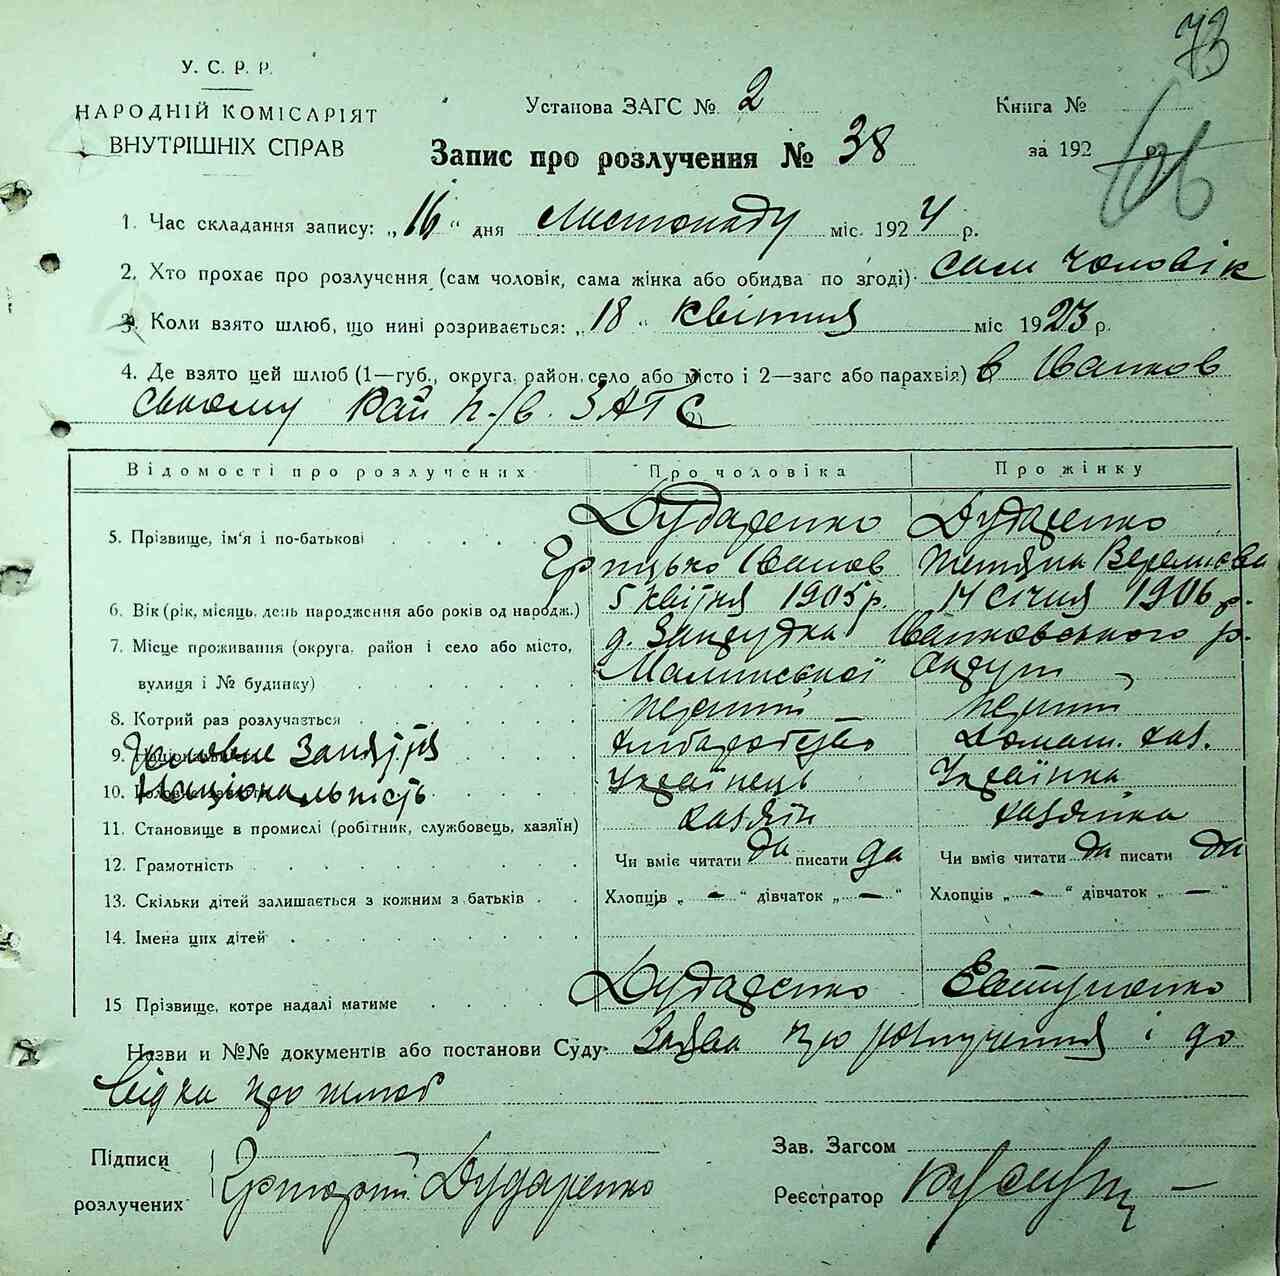 73
У. С. Р. Р.
НАРОДНІЙ КОМІСАРІЯТ
ВНУТРІШНІХ СПРАВ
Установа ЗАГС № 2
Книга №
Запис про розлучення № 38
за 192
106
1. Час складання запису: „16" дня Листопаду міс. 1924 р.
2. Хто прохає про розлучення (сам чоловік, сама жінка або обидва по згоді) сам чоловік
3. Коли взято шлюб, що нині розривається: „18" квітня міс 1923 р.
4. Де взято цей шлюб (1—губ., округа, район, село або місто і 2—загс або парахвія) в Іванков
ському Рай п/в. ЗАГС
Відомості про розлучених Про чоловіка Про жінку
5. Прізвище, ім'я і по-батькові Дударенко Дударенко
Іванов Тетяна
6. Вік (рік, місяць, день народження або років од народж.) 5 квітня 1905 р. 14 січня 1906 р.
7. Місце проживання (округа, район і село або місто, Іванковського р.
вулиця і № будинку) Малинської округи
8. Котрий раз розлучається перший перший
9. Головне заняття хліборобство домаш. хаз.
10. Національність Українець Українка
11. Становище в промислі (робітник, службовець, хазяїн) хазяїн хазяйка
12. Грамотність Чи вміє читати да писати да Чи вміє читати да писати да
13. Скільки дітей залишається з кожним з батьків Хлопців „—" дівчаток „—" Хлопців „—" дівчаток „—"
14. Імена цих дітей
15 Прізвище, котре надалі матиме Дударенко Євтушенко
Назви и №№ документів або постанови Суду Заява про розлучення і до
відка про шлюб
Підписи
розлучених Дударенко
Зав. Загсом
Реєстратор